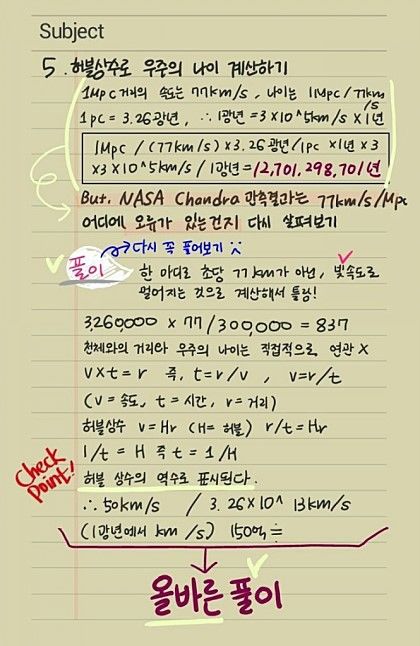 Subject
5. 허블상수로 우주의 나이 계산하기
1Mpc 거리의 속도는 77km/s, 나이는 1Mpc/77km/s
1pc = 3.26광년, ∴ 1광년 = 3×10^5km/s × 1년
1Mpc / (77km/s) × 3.26광년/1pc × 1년 × 3
×3×10^5km/s / 1광년 = 12,701,298,701년
But, NASA Chandra 관측결과는 77km/s/Mpc
어디에 오류가 있는건지 다시 살펴보기
풀이 → 다시 꼭 풀어보기 :(
한 마디로 초당 77km가 아닌, 빛속도로
멀어지는 것으로 계산해서 틀림!
3,260,000 × 77 / 300,000 = 837
천체와의 거리와 우주의 나이는 직접적으로 연관 X
V×t = r 즉, t=r/v , v=r/t
(v = 속도, t = 시간, r = 거리)
허블상수 v=Hr (H= 허블) r/t=Hr
1/t = H 즉 t = 1/H
Check point!
허블 상수의 역수로 표시된다.
∴ 50km/s / 3.26×10^ 13km/s
(1광년에서 km/s) 150억 ≒
올바른 풀이